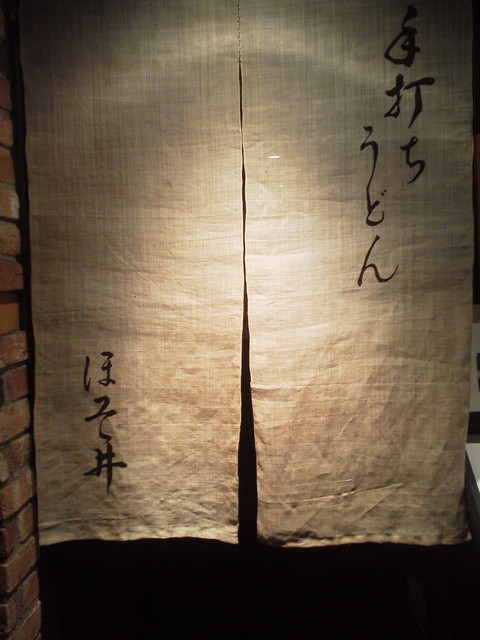 手打ち
うどん
ほそ井